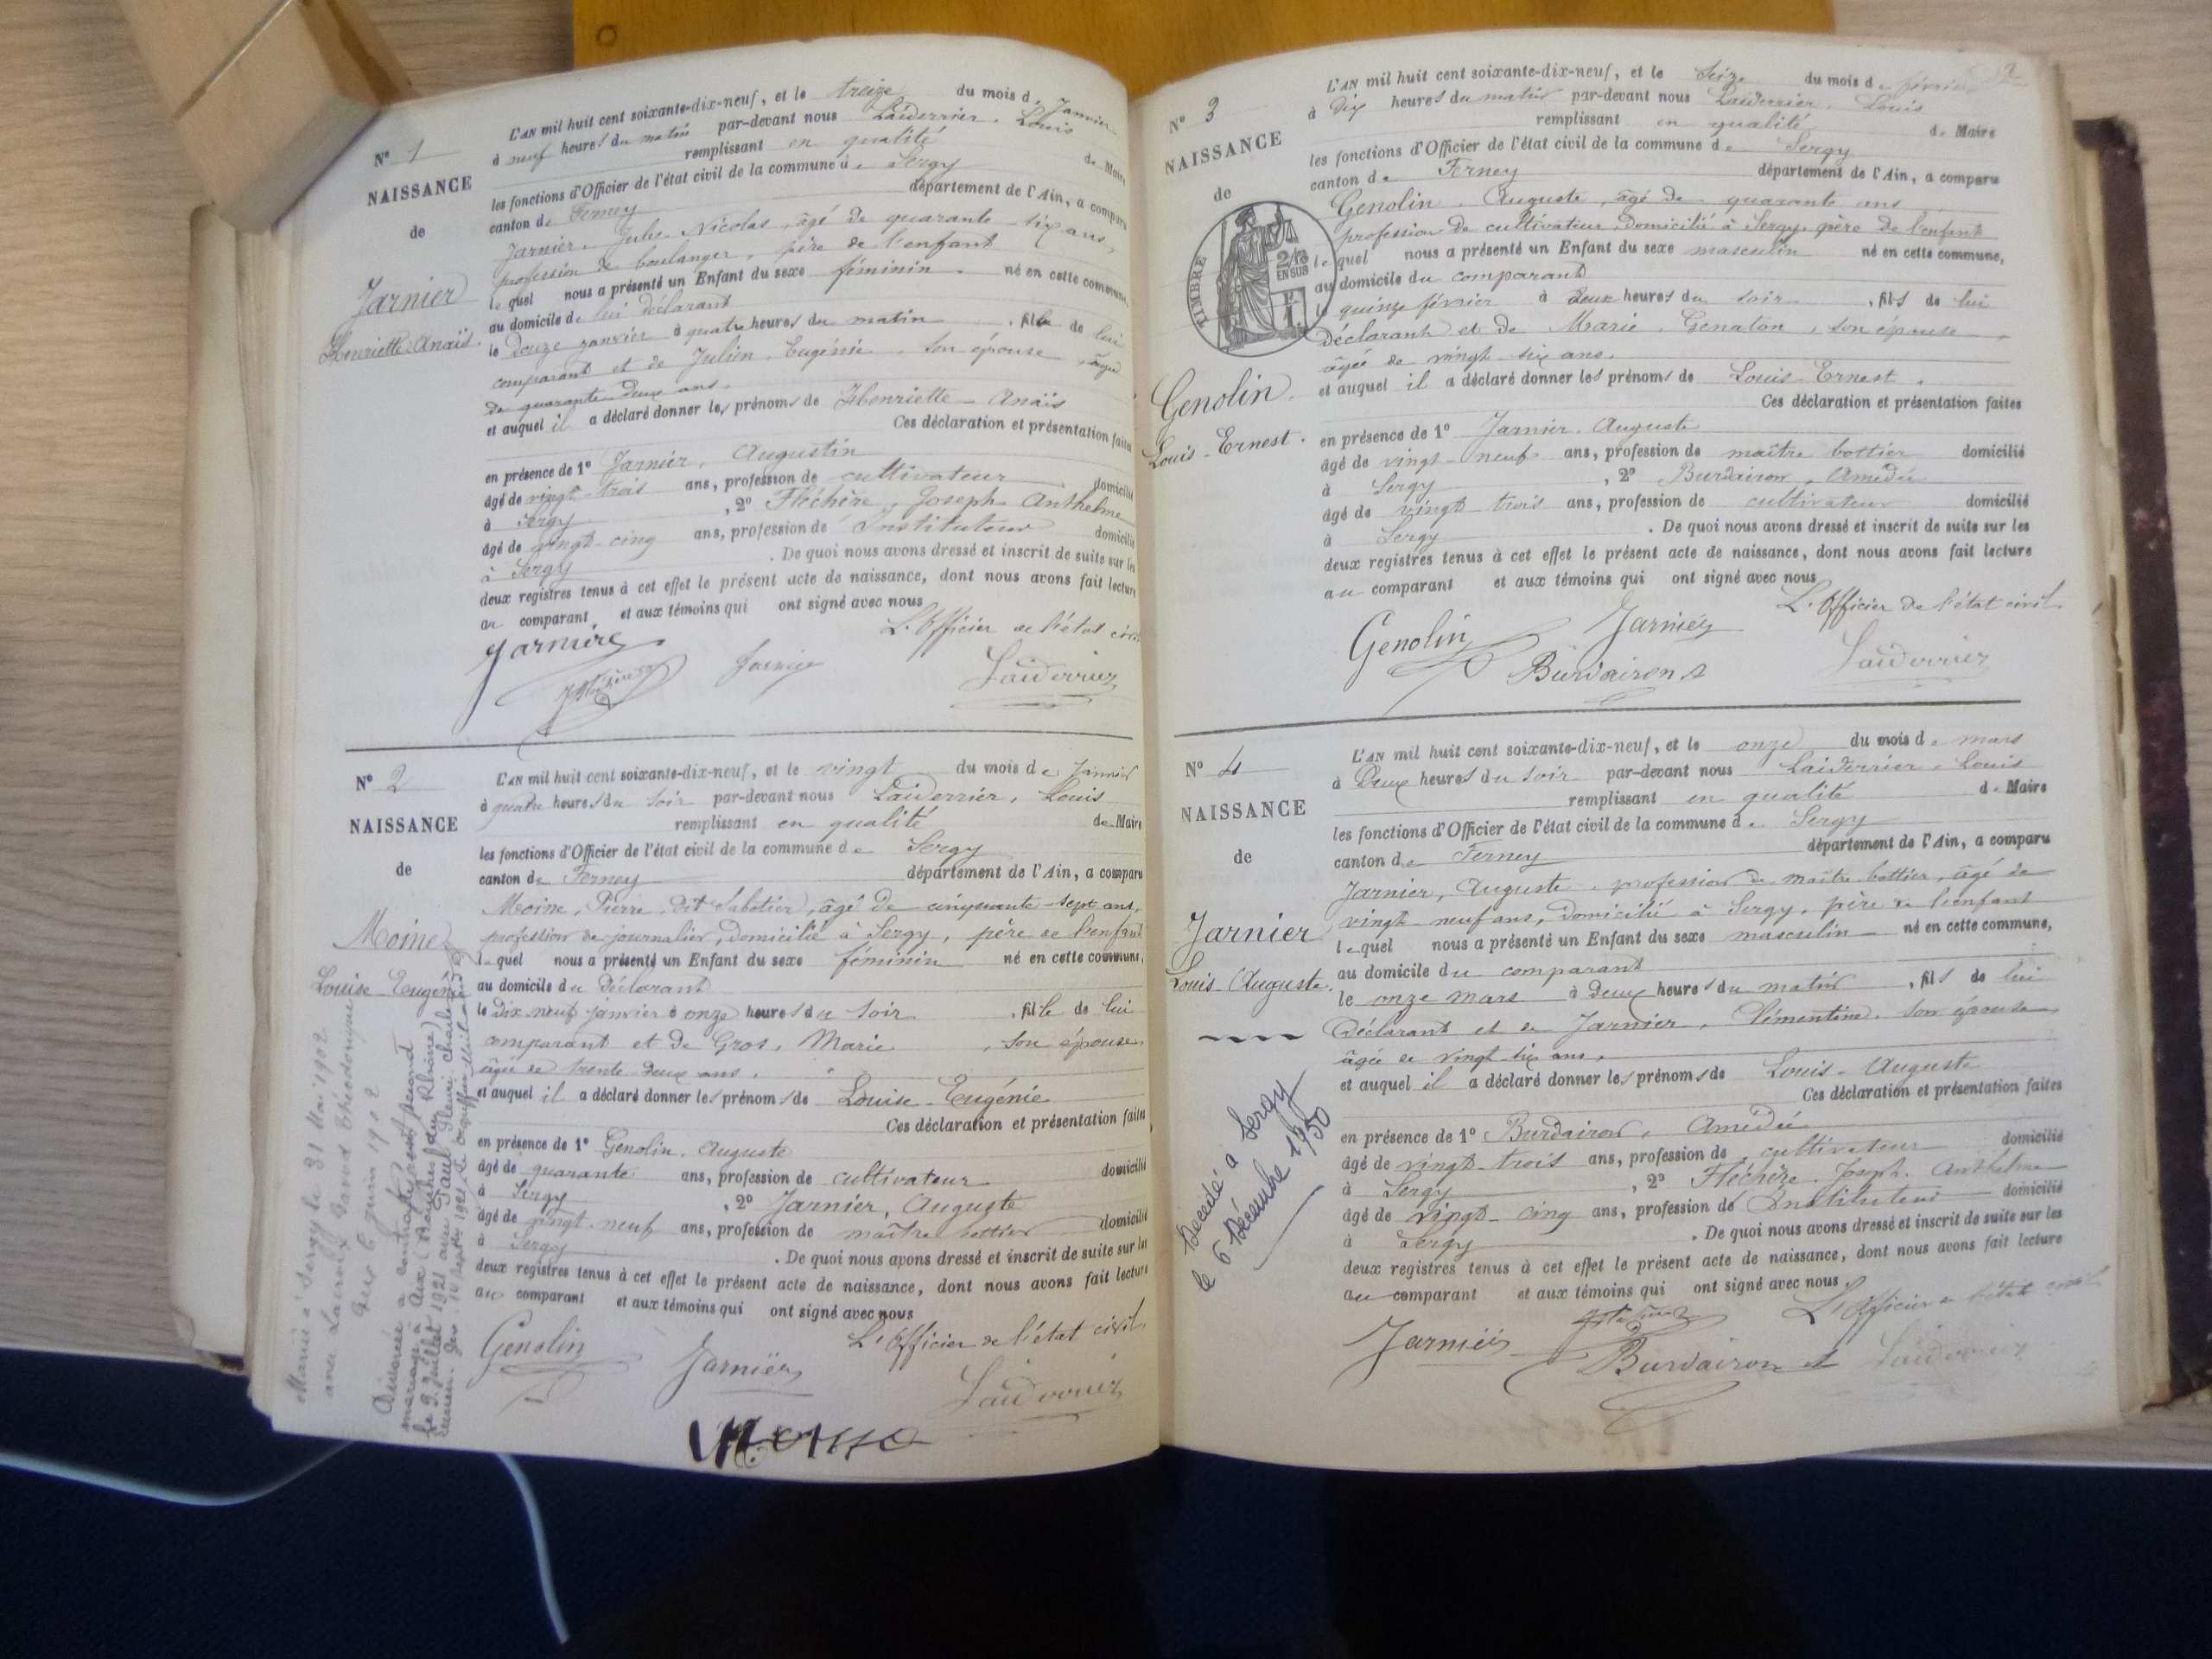 N° 1
NAISSANCE
de
Jarnier
Henriette Anaïs
L'AN mil huit cent soixante-dix-neuf, et le treize du mois de Janvier
à neuf heures du matin par-devant nous Laiderrier, Louis
remplissant en qualité de Maire
les fonctions d'Officier de l'état civil de la commune de Sergy
canton de Ferney département de l'Ain, a comparu
Jarnier, Jules Nicolas, âgé de quarante-six ans,
profession de boulanger, père de l'enfant
lequel nous a présenté un Enfant du sexe féminin né en cette commune,
au domicile de lui déclarant
le douze janvier à quatre heures du matin, fille de lui
comparant et de Julien, Eugénie, son épouse, âgée
de quarante-deux ans.
et auquel il a déclaré donner les prénoms de Henriette-Anaïs
Ces déclaration et présentation faites
en présence de 1° Jarnier, Augustin
âgé de vingt-trois ans, profession de cultivateur domicilié
à Sergy, 2° Fléchère, Joseph Anthelme
âgé de vingt-cinq ans, profession de Instituteur domicilié
à Sergy. De quoi nous avons dressé et inscrit de suite sur les
deux registres tenus à cet effet le présent acte de naissance, dont nous avons fait lecture
au comparant et aux témoins qui ont signé avec nous
L'Officier de l'état civil
Laiderrier
N° 2
NAISSANCE
de
Moine
Louise Eugénie
L'AN mil huit cent soixante-dix-neuf, et le vingt du mois de Janvier
à quatre heures du soir par-devant nous Laiderrier, Louis
remplissant en qualité de Maire
les fonctions d'Officier de l'état civil de la commune de Sergy
canton de Ferney département de l'Ain, a comparu
Moine, Pierre, dit Sabotier, âgé de cinquante-sept ans,
profession de journalier, domicilié à Sergy, père de l'enfant
lequel nous a présenté un Enfant du sexe féminin né en cette commune,
au domicile du déclarant
le dix-neuf janvier à onze heures du soir, fille de lui
comparant et de Gros, Marie, son épouse,
âgée de trente-deux ans.
et auquel il a déclaré donner les prénoms de Louise-Eugénie
Ces déclaration et présentation faites
en présence de 1° Genolin, Auguste
âgé de quarante ans, profession de cultivateur domicilié
à Sergy, 2° Jarnier, Auguste
âgé de vingt-neuf ans, profession de maître bottier domicilié
à Sergy. De quoi nous avons dressé et inscrit de suite sur les
deux registres tenus à cet effet le présent acte de naissance, dont nous avons fait lecture
au comparant et aux témoins qui ont signé avec nous
L'Officier de l'état civil
Genolin
Jarnier
Laiderrier
Mariée à Sergy le 31 Mai 1902
avec
Gex 6 juin 1902
Divorcée a contracté second
mariage à
le 9 Juillet 1921 avec Paul
N° 3
NAISSANCE
de
TIMBRE
2/10
EN SUS
Genolin
Louis-Ernest
L'AN mil huit cent soixante-dix-neuf, et le seize du mois de février
à dix heures du matin par-devant nous Laiderrier, Louis
remplissant en qualité de Maire
les fonctions d'Officier de l'état civil de la commune de Sergy
canton de Ferney département de l'Ain, a comparu
Genolin, Auguste, âgé de quarante ans
profession de cultivateur, domicilié à Sergy, père de l'enfant
lequel nous a présenté un Enfant du sexe masculin né en cette commune,
au domicile du comparant
le quinze février à deux heures du soir, fils de lui
déclarant et de Marie, Genaton, son épouse,
âgée de vingt-six ans.
et auquel il a déclaré donner les prénoms de Louis-Ernest.
Ces déclaration et présentation faites
en présence de 1° Jarnier, Auguste
âgé de vingt-neuf ans, profession de maître bottier domicilié
à Sergy, 2° Burdairon, Amédée
âgé de vingt-trois ans, profession de cultivateur domicilié
à Sergy. De quoi nous avons dressé et inscrit de suite sur les
deux registres tenus à cet effet le présent acte de naissance, dont nous avons fait lecture
au comparant et aux témoins qui ont signé avec nous
L'Officier de l'état civil
Genolin
Jarnier
Burdairon A
Laiderrier
N° 4
NAISSANCE
de
Jarnier
Louis-Auguste
Décédé à Sergy
le 6 Décembre 1950
L'AN mil huit cent soixante-dix-neuf, et le onze du mois de mars
à deux heures du soir par-devant nous Laiderrier, Louis
remplissant en qualité de Maire
les fonctions d'Officier de l'état civil de la commune de Sergy
canton de Ferney département de l'Ain, a comparu
Jarnier, Auguste, profession de maître bottier, âgé de
vingt-neuf ans, domicilié à Sergy, père de l'enfant
lequel nous a présenté un Enfant du sexe masculin né en cette commune,
au domicile du comparant
le onze mars à deux heures du matin, fils de lui
déclarant et de Jarnier, Clémentine, son épouse,
âgée de vingt-six ans.
et auquel il a déclaré donner les prénoms de Louis-Auguste
Ces déclaration et présentation faites
en présence de 1° Burdairon, Amédée
âgé de vingt-trois ans, profession de cultivateur domicilié
à Sergy, 2° Fléchère, Joseph Anthelme
âgé de vingt-cinq ans, profession de Instituteur domicilié
à Sergy. De quoi nous avons dressé et inscrit de suite sur les
deux registres tenus à cet effet le présent acte de naissance, dont nous avons fait lecture
au comparant et aux témoins qui ont signé avec nous
L'Officier de l'état civil
Jarnier
Burdairon A
Laiderrier